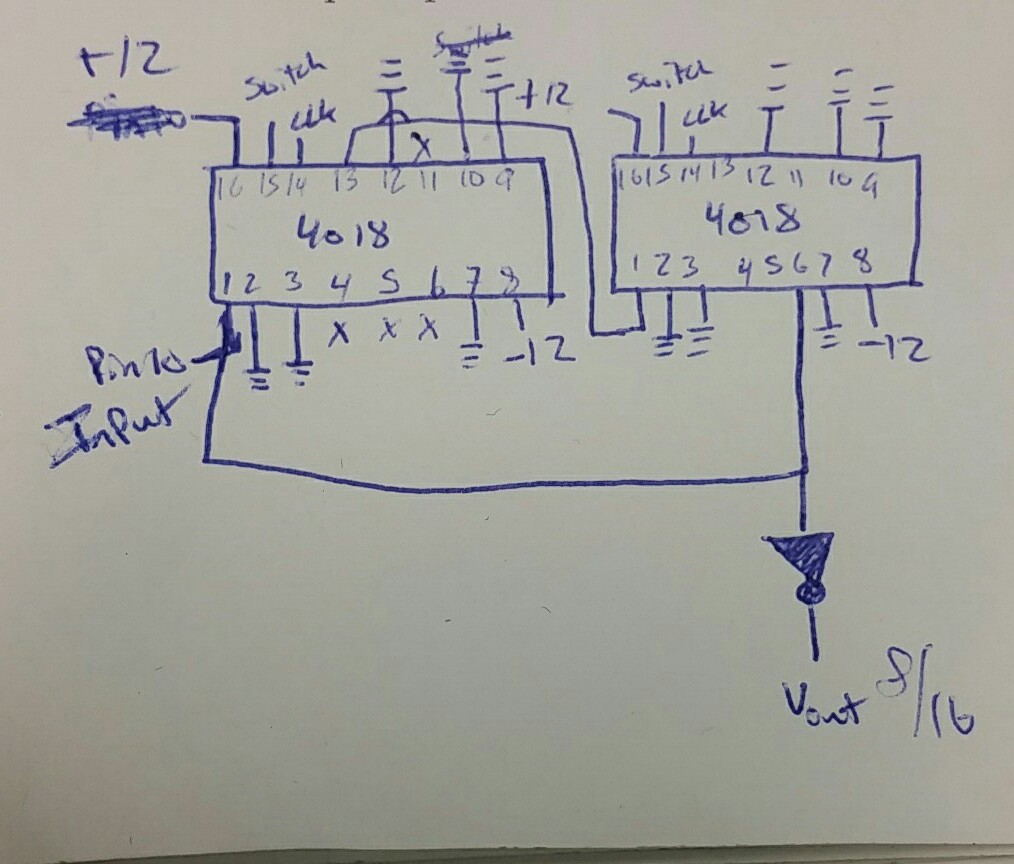 +12
Switch
clk
+12
Switch
clk
X
16 15 14 13 12 11 10 9
4018
1 2 3 4 5 6 7 8
X X X
-12
16 15 14 13 12 11 10 9
4018
1 2 3 4 5 6 7 8
-12
Input
Vout 8/16